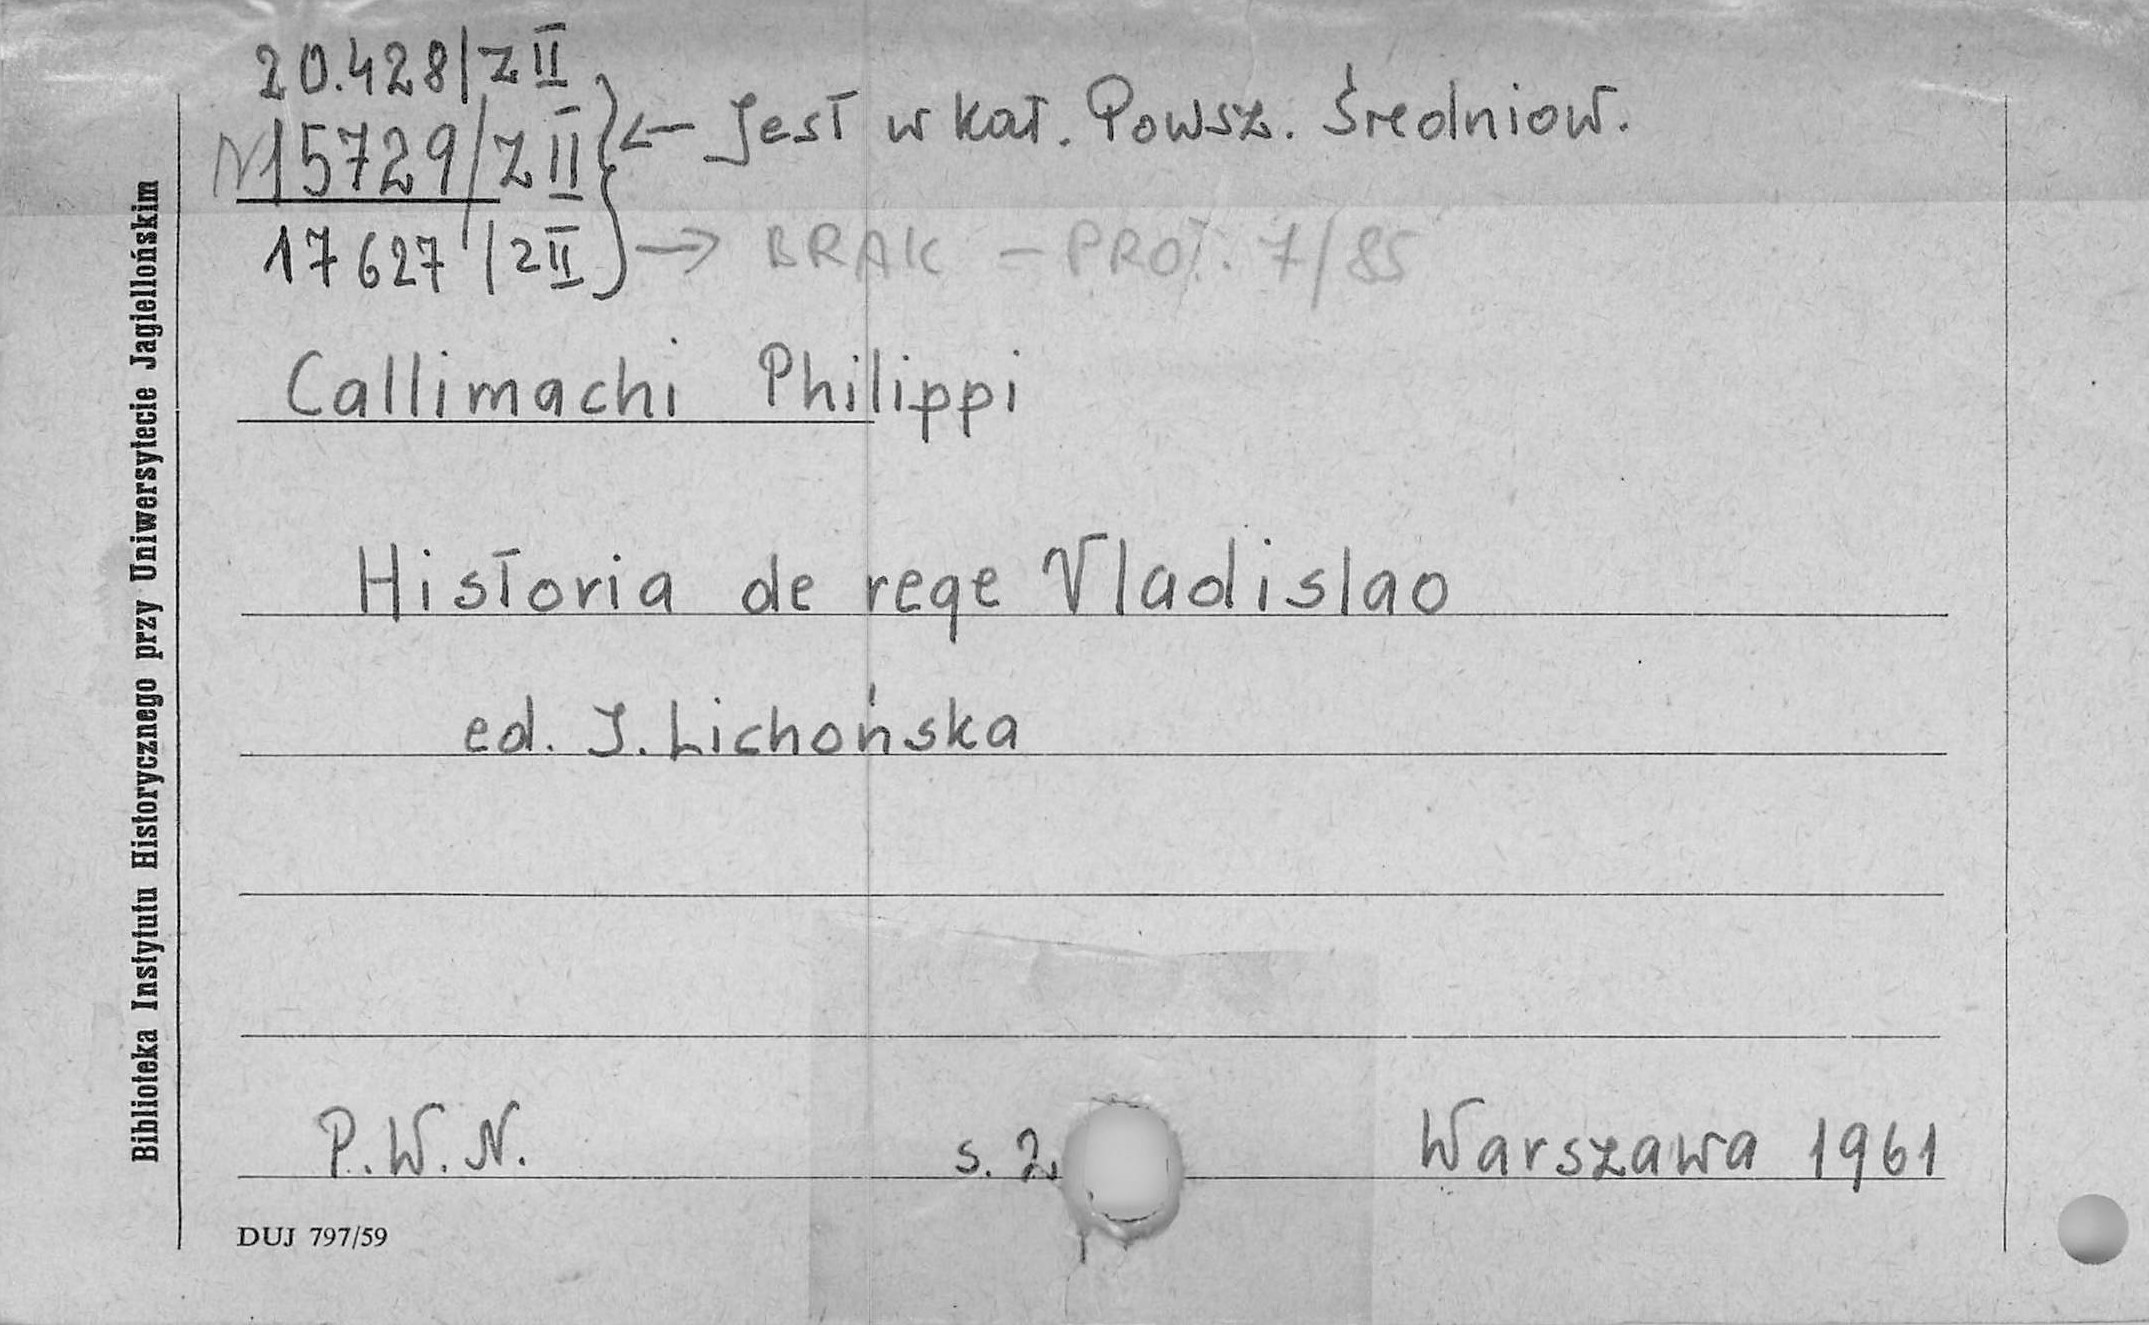 20.428/Z II
N15729/Z II } ← Jest w kat. Powsz. Średniow.
17627/Z II } → BRAK – PROT. 7/85
Callimachi Philippi
Historia de rege Vladislao
ed. I. Lichońska
P.W.N. s. 2 Warszawa 1961
DUJ 797/59
Biblioteka Instytutu Historycznego przy Uniwersytecie Jagiellońskim